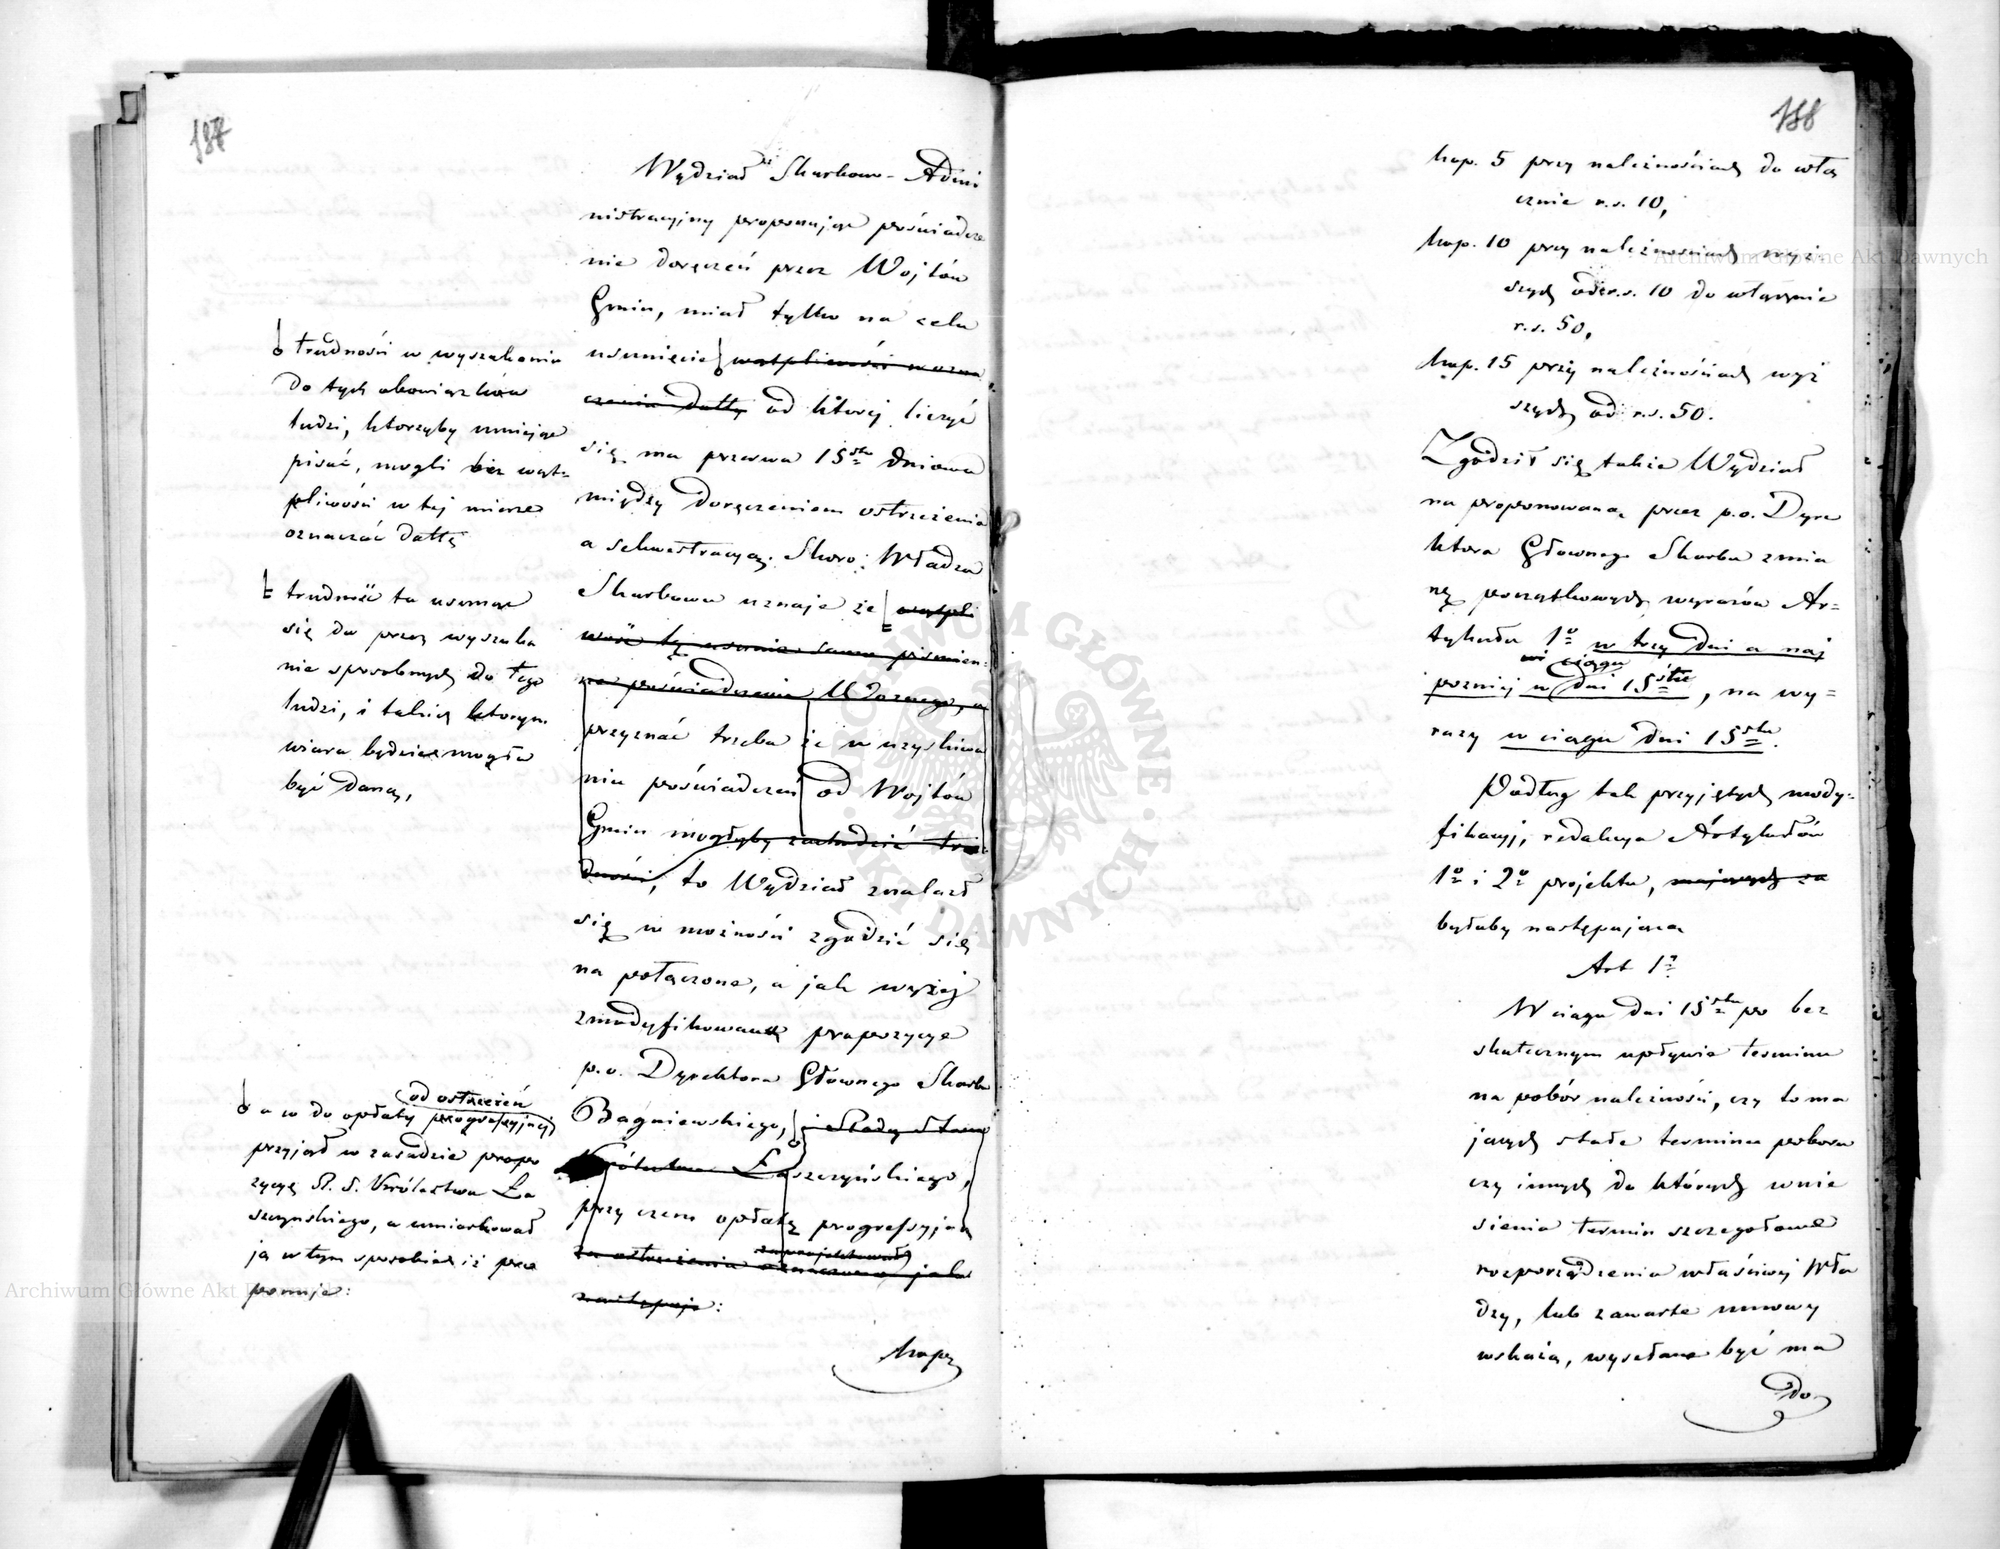 187
Wydział Skarbowo-Admi
nistracyjny proponując poświadcze
nie doręczeń przez Wojtów
Gmin, miał tylko na celu
usunięcie wątpliwości w ozna
czeniu datty od któréj liczyć
się ma przerwa 15stu dniowa
między doręczeniem ostrzeżenia
a sekwestracyą. Skoro Władza
Skarbowa uznaje że wątpli
wość tę usunie samo piśmien-
ne poświadczenie Woźnego, a
przyznać trzeba że w uzyskiwa
niu poświadczeń od Wojtów
Gmin mogłyby zachodzić tru-
dności, to Wydział znalazł
się w możności zgodzić się
na połączone, a jak wyżej
zmodyfikowane propozycye
p.o. Dyrektora Głównego Skarbu
Bagniewskiego, i Rady Stanu
Królestwa Łaszczyńskiego,
przy czem opłatę progressyjną
za ostrzeżenia zaprojektował
oznaczono jak
następuje:
kopz
trudności w wyszukaniu
do tych obowiązków
ludzi, którzyby umiejąc
pisać, mogli bez wąt-
pliwości w tej mierze
oznaczać dattę
trudność ta usunąć
się da przez wyszuka
nie sposobnych do tego
ludzi, i takich którym
wiara będzie mogła
być daną,
a co do opłaty od ostrzeżeń progressyjnéj
przyjął w zasadzie propo
zycyę R. S. Królestwa Ła
szczyńskiego, a umiarkował
ją w tym sposobie iż pro
ponuje:
188
kop. 5 przy należnościach do włą
cznie r.s. 10,
kop. 10 przy należnościach wyż-
szych od r.s. 10 do włącznie
r.s. 50,
kop. 15 przy należnościach wyż
szych od r.s. 50.
Zgodził się także Wydział
na proponowaną przez p.o. Dyre
ktora Głównego Skarbu zmia
nę początkowych wyrazów Ar-
tykułu 1o w trzy dni a naj
poźniej w ciągu dni 15stu, na wy-
razy w ciągu dni 15stu.
Podług tak przyjętych mody-
fikacyj, redakcya Artykułów
1o i 2o projektu, mających za
byłaby następująca
Art 1o
W ciągu dni 15stu po bez
skutecznym upływie terminu
na pobór należności, czy to ma
jących stałe termina poboru
czy innych do których wnie
sienia termin szczegółowe
rozporządzenia właściwej Wła
dzy, lub zawarte umowy
wskażą, wysłane być ma
do
Archiwum Główne Akt Dawnych
Archiwum Główne Akt Dawnych
ARCHIWUM GŁÓWNE · AKT DAWNYCH ·